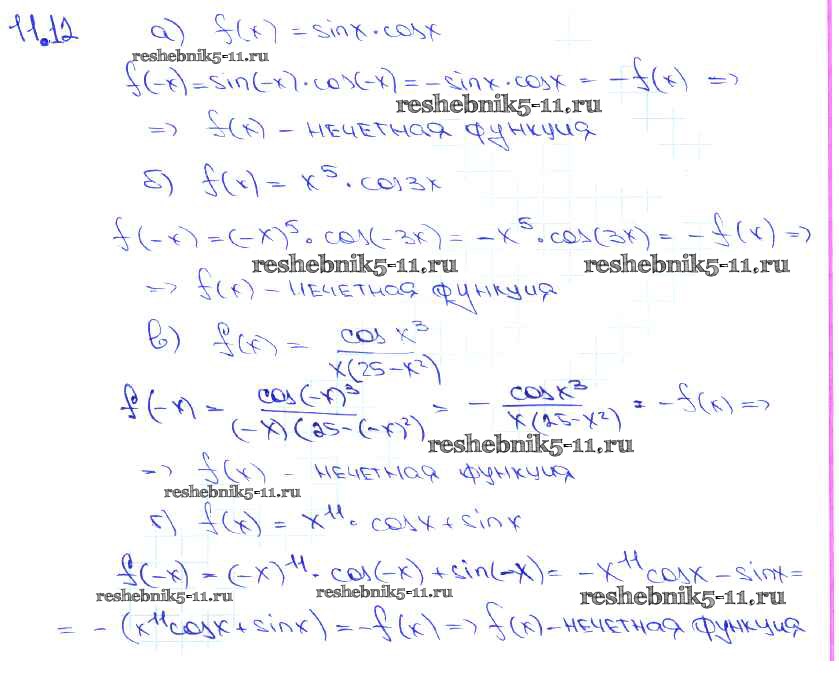 11.12 а) f(x) = sinx·cosx
reshebnik5-11.ru
f(-x) = sin(-x)·cos(-x) = -sinx·cosx = -f(x) =>
reshebnik5-11.ru
=> f(x) - нечетная функция
б) f(x) = x⁵·cos3x
f(-x) = (-x)⁵·cos(-3x) = -x⁵·cos(3x) = -f(x) =>
reshebnik5-11.ru reshebnik5-11.ru
=> f(x) - нечетная функция
в) f(x) = cos x³ / x(25-x²)
f(-x) = cos(-x)³ / (-x)(25-(-x)²) = - cosx³ / x(25-x²) = -f(x) =>
reshebnik5-11.ru
=> f(x) - нечетная функция
reshebnik5-11.ru
г) f(x) = x¹¹·cosx+sinx
f(-x) = (-x)¹¹·cos(-x)+sin(-x) = -x¹¹cosx-sinx =
reshebnik5-11.ru reshebnik5-11.ru reshebnik5-11.ru
= -(x¹¹cosx+sinx) = -f(x) => f(x) - нечетная функция